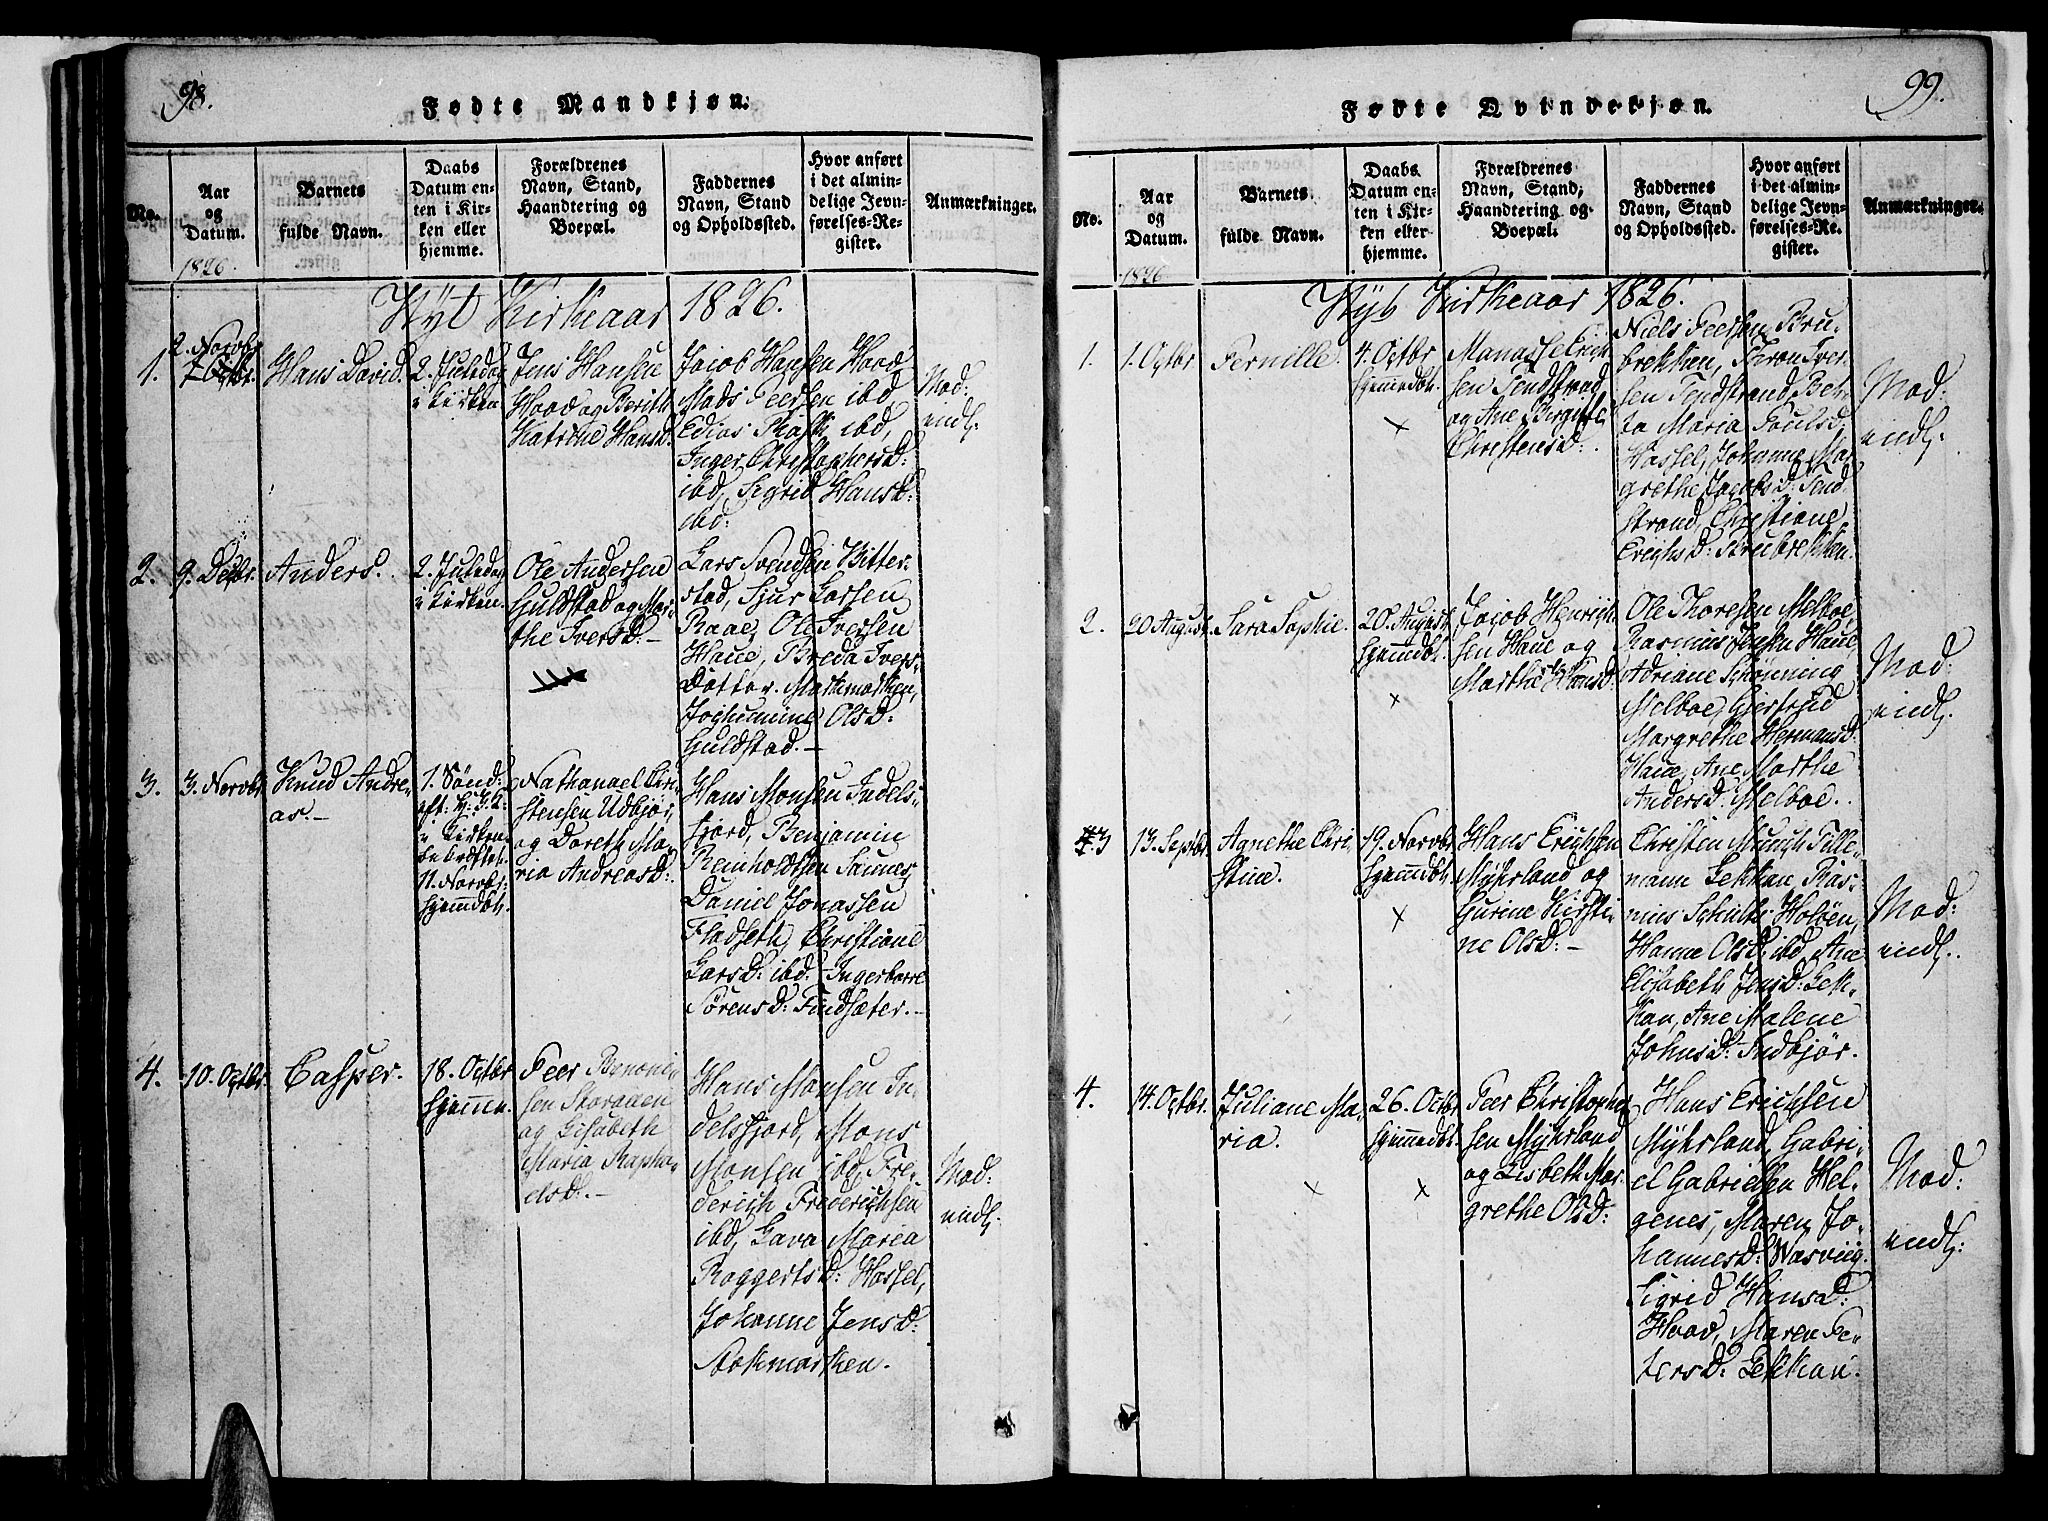 98.
Fødte Mandkjøn.
No.
Aar
og
Datum.
1826.
Barnets
fulde Navn.
Daabs
Datum en-
ten i Kir-
ken eller
hjemme.
Forældrenes
Navn, Stand,
Haandtering og
Boepæl.
Faddernes
Navn, Stand
og Opholdssted.
Hvor anført
i det almin-
delige Jevn-
førelses-Re-
gister.
Anmærkninger.
Nyt Kirkeaar 1826.
1.
2. Novbr
Hans David.
2. Juledag
i Kirken
Jens Hansen
Haad og Berith
Katrine Hansd.
Jacob Hansen Haad
Mads Peersen ibd
Edias Rask ibd,
Inger Christophersd:
ibd, Sigrid Hansd:
ibd:
Mod:
indl.
2.
9. Decbr.
Anders.
2. Juledag
i Kirken.
Ole Andersen
Guldstad og Mar-
the Iversd: -
Lars Svendsen Vitter-
stad, Sjur Larsen
Raae, Ole Iversen
Haue, Breda Ivers-
Datter. Markmarken,
Jochumine Olsd:
Guldstad. -
3.
3. Novbr.
Knud Andre-
as. -
1. Sønd:
eft: H: 3 K:
i Kirken
bekræftet.
11. Novbr:
hjemdøbt.
Nathanael Chri-
stensen Udbjør,
og Doreth Ma-
ria Andreasd:
Hans Monsen Indels-
fjord, Benjamin
Reinholdtsen Sannes,
Daniel Jonassen
Fladseth, Christiane
Larsd: ibd. Ingerborre
Sørensd: Findsæter. -
4.
10. Octbr.
Casper.
18. Octbr
hjemme.
Peer Benoni-
sen Storaaen
og Lisabeth
Maria Rapha-
elsd. -
Hans Monsen In-
delsfjord, Mons
Monsen ibd, Fre-
derich Frederichsen
ibd, Lava Maria
Roggertsd: Hassel,
Johanne Jensd:
Stokmarken.
Mod:
indl.
99.
Fødte Qvindekjøn.
No.
Aar
og
Datum.
1826
Barnets
fulde Navn.
Daabs
Datum en-
ten i Kir-
ken eller
hjemme.
Forældrenes
Navn, Stand,
Haandtering og
Boepæl.
Faddernes
Navn, Stand
og Opholdssted.
Hvor anført
i det almin-
delige Jevn-
førelses-Re-
gister.
Anmærkninger.
Nyt Kirkeaar 1826.
1.
1. Octbr
Pernille.
4. Octbr
hjemmedøbt.
Manasse Erich-
sen Tendstrand
og Ane Birgitte
Christensd:
Niels Peersen Bru-
brekken, Aron Iver-
sen Tendstrand, Bet-
ta Maria Poulsd:
Hassel, Johanne Mar-
grethe Jacobsd: Tend-
strand, Christiane
Erichsd: Brubrekken.
Mod:
indl.
2.
20 August.
Sara Sophie.
28. August.
hjemmdøbt.
Jacob Henrich-
sen Haue og
Marthe Hansd:
Ole Thoresen Melboe,
Rasmus Jensen Haue,
Adriane Schønning
Melboe, Gjertrud
Margrethe Hermansd:
Haue, Ane Marthe
Andersd: Melboe.
Mod:
indl.
3
13. Septbr.
Agnethe Chri-
stine.
19. Novbr
hjemmdøbt.
Hans Erichsen
Myhrland og
Gurine Kirsti-
ne Olsd: -
Christen Munch Tille-
mann Lekkan, Ras-
mus Schultz Holøen,
Hanne Olsd: ibd, Ane
Elisabeth Jensd: Lek-
kan, Ane Malene
Johnsd: Indbjør.
Mod:
indl.
4.
14. Octbr.
Juliane Ma-
ria.
26. Octbr
hjemmedøbt.
Peer Christopher-
sen Myhrland
og Lisbeth Mar-
grethe Olsd:
Hans Erichsen
Myhrland, Gabri-
el Gabrielsen Hel-
genes, Maren Jo-
hannesd: Vasviig.
Sigrid Hansd:
Haad, Maren Pe-
tersd: Lekkan.
Mod:
indl: